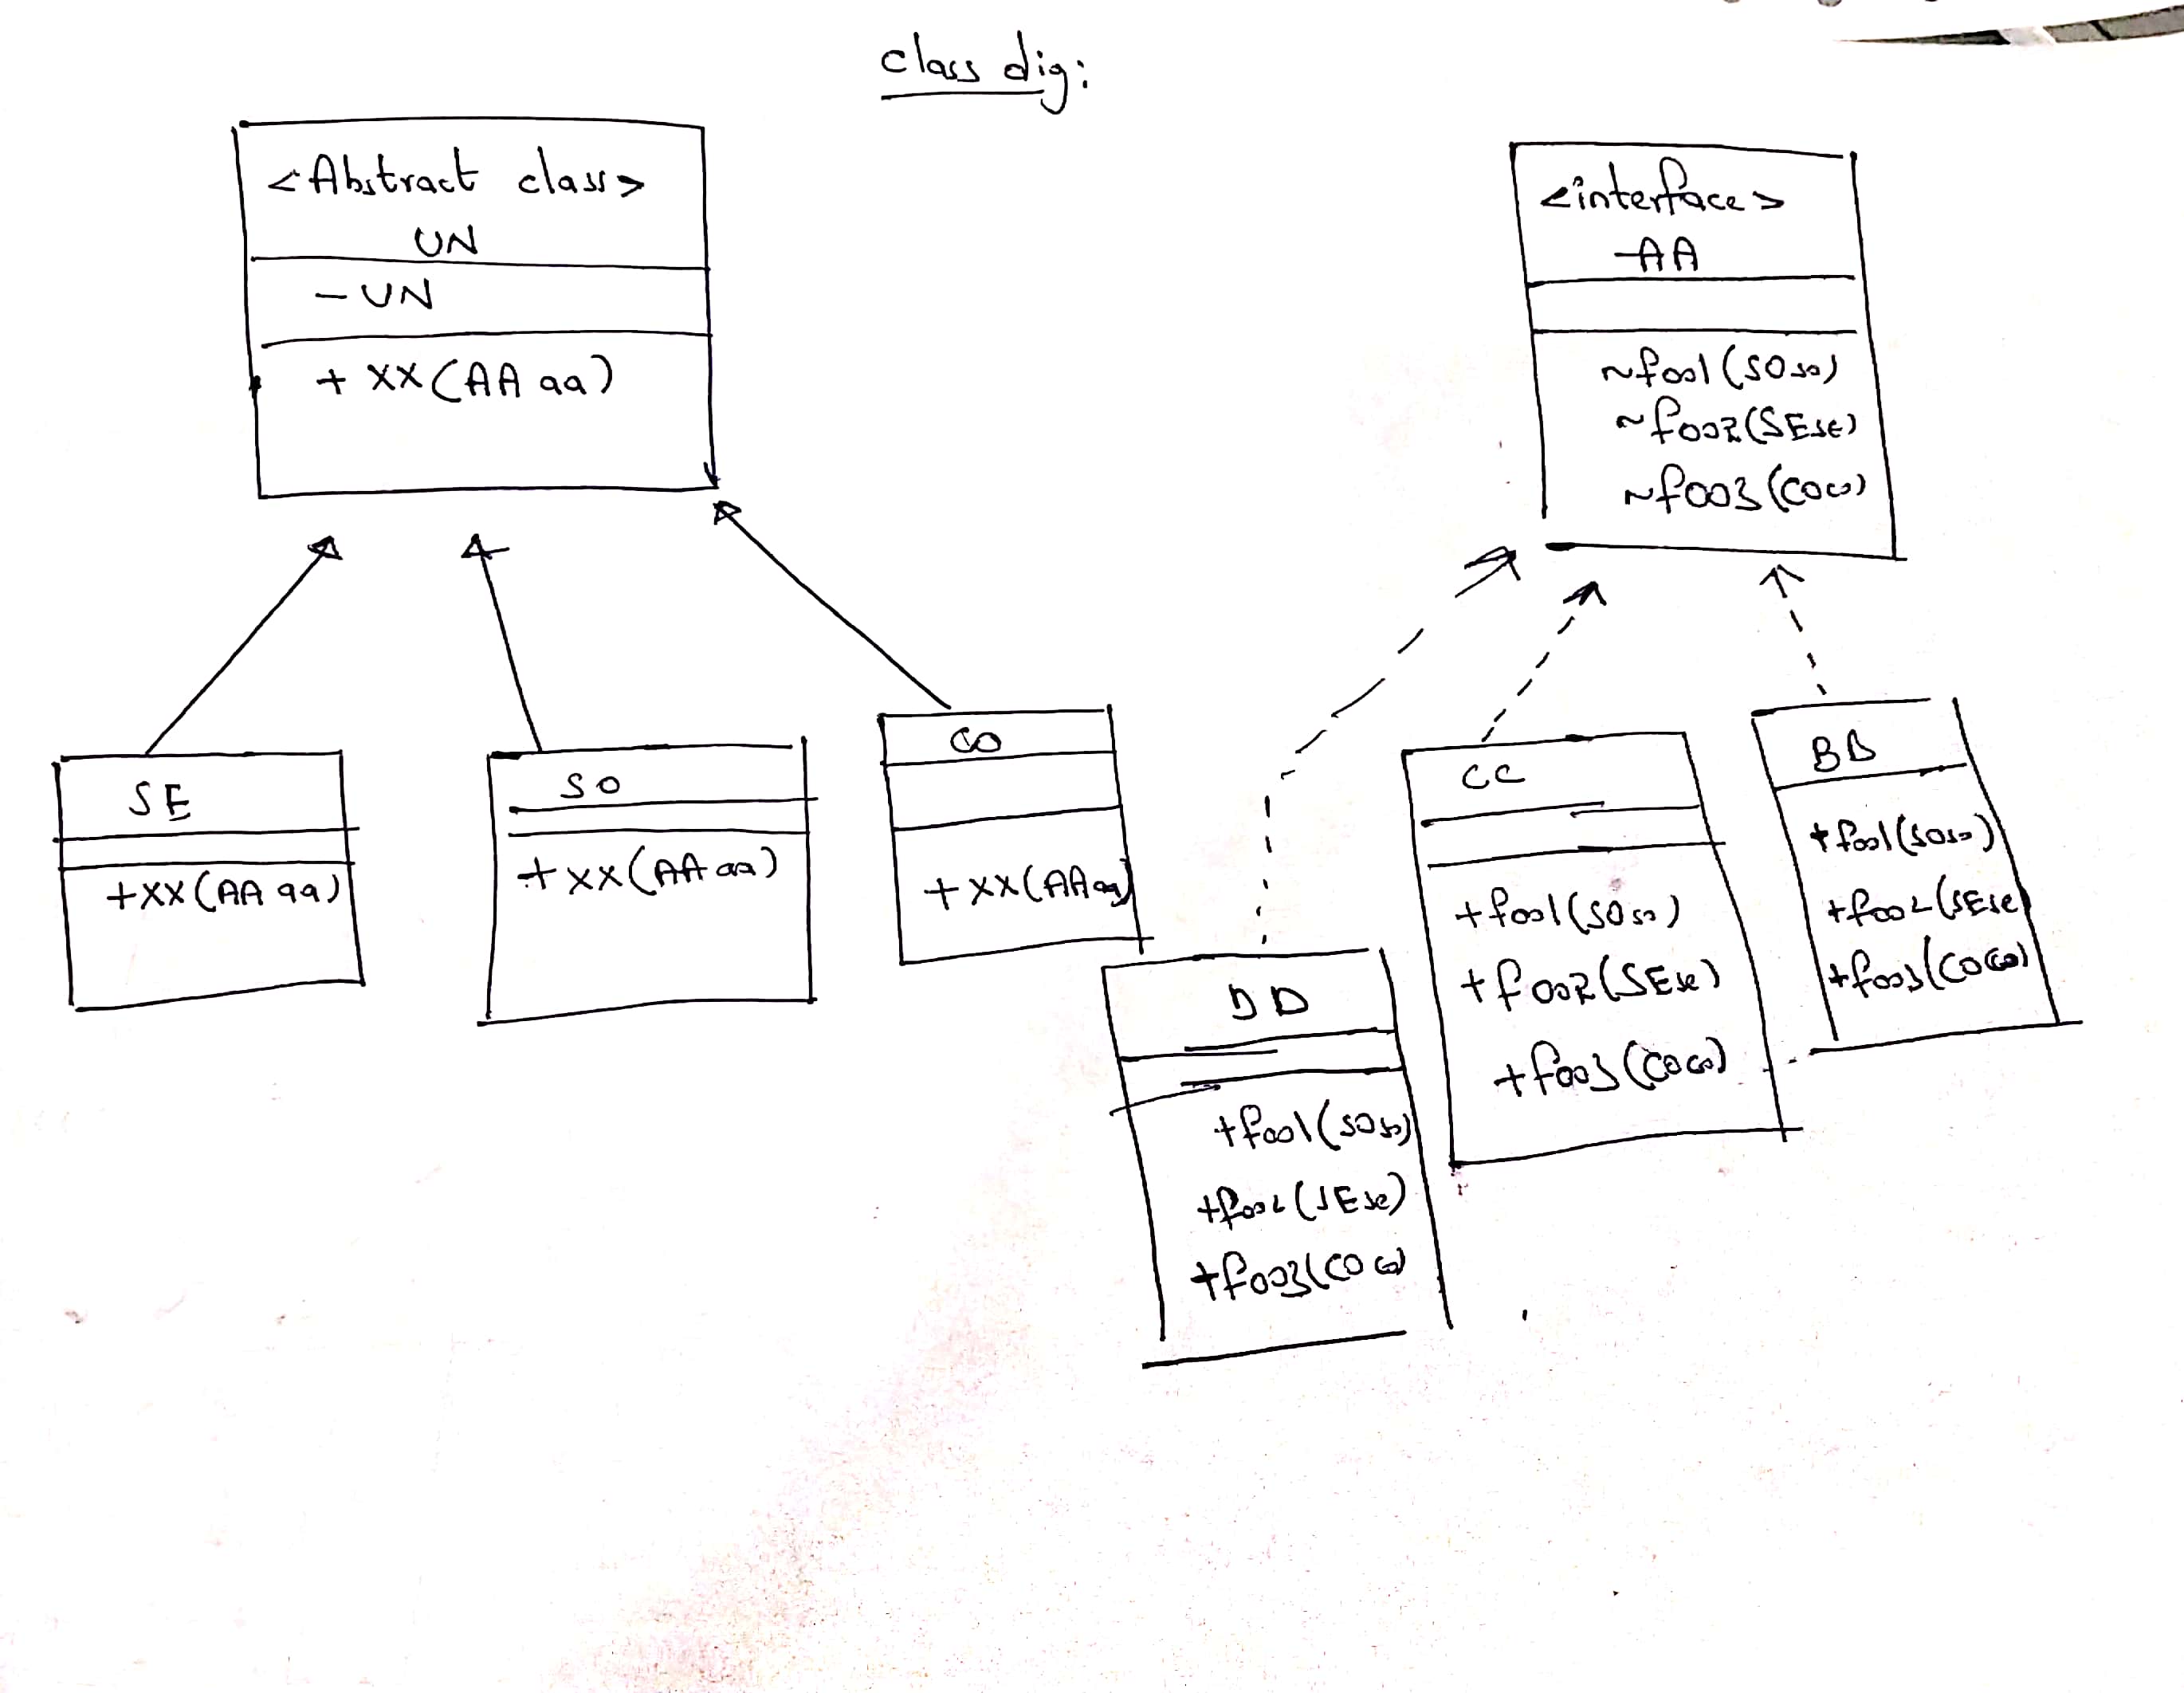 class dig:
<Abstract class>
UN
- UN
+ XX(AA aa)
<interface>
AA
~foo1(SO so)
~foo2(SE se)
~foo3(CO co)
SE
+XX(AA aa)
SO
+XX(AA aa)
CO
+XX(AA aa)
DD
+foo1(SO so)
+foo2(SE se)
+foo3(CO co)
CC
+foo1(SO so)
+foo2(SE se)
+foo3(CO co)
BB
+foo1(SO so)
+foo2(SE se)
+foo3(CO co)